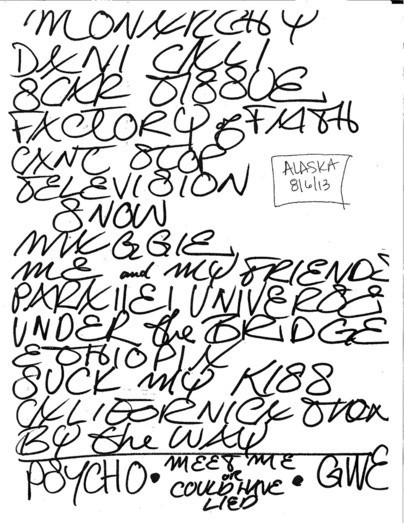 MONARCHY
DANI CALI
SCAR TISSUE
FACTORY of FAITH
CANT STOP
TELEVISION
SNOW
ALASKA
8/6/13
MAGGIE
ME and MY FRIENDS
PARALLEL UNIVERSE
UNDER the BRIDGE
ETHIOPIA
SUCK MY KISS
CALIFORNICATION
BY the WAY
PSYCHO • MEET ME or COULD HAVE LIED • GWE